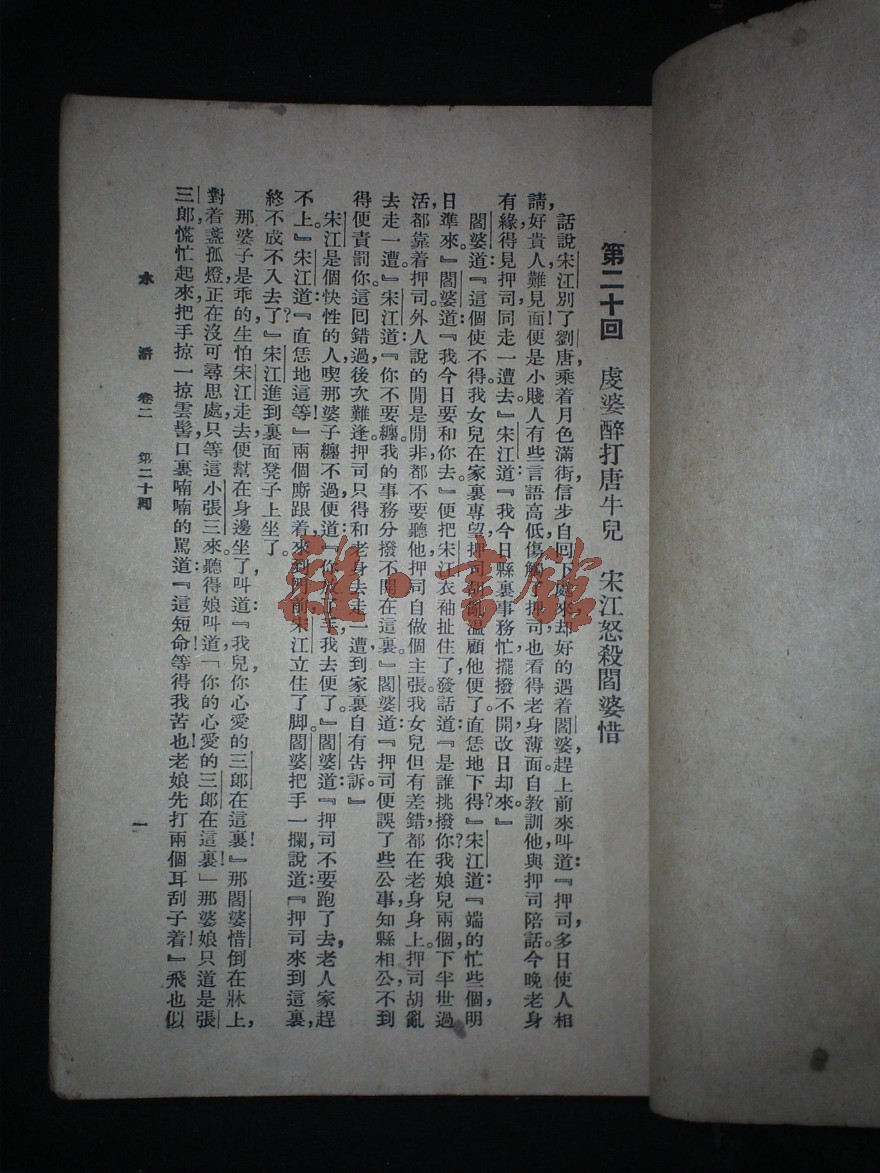 第二十回　虔婆醉打唐牛兒　宋江怒殺閻婆惜
話說宋江別了劉唐乘着月色滿街信步自回下處來却好的遇着閻婆趕上前來叫道：『押司，多日使人相
請，好貴人難見面便是小賤人有些言語高低傷觸了押司也看得老身薄面。自教訓他與押司陪話。今晚老身
有緣得見押司，同走一遭去』宋江道：『我今日縣裏事務忙擺撥不開改日却來。』
閻婆道：『這個使不得我女兒在家裏專望押司胡亂溫顧他便了。直恁地下得？』宋江道：『端的忙些個，明
日準來。』閻婆道：『我今日要和你去。』便把宋江衣袖扯住了，發話道：『是誰挑撥你？我娘兒兩個，下半世過
活都靠着押司。外人說的閒是閒非都不要聽他，押司自做個主張我女兒但有差錯，都在老身身上。押司胡亂
去走一遭。』宋江道：『你不要纏。我的事務分撥不開在這裏。』閻婆道：『押司便誤了些公事，知縣相公，不到
得便責罰你。這回錯過，後次難逢。押司只得和老身去走一遭，到家裏自有告訴。』
宋江是個快性的人，喫那婆子纏不過，便道：『你放了手我去便了。』閻婆道：『押司不要跑了去，老人家趕
不上。』宋江道：『直恁地這等！』兩個廝跟着來到門前宋江立住了脚。閻婆把手一攔，說道：『押司來到這裏，
終不成不入去了？』宋江進到裏面凳子上坐了。
那婆子是乖的，生怕宋江走去，便幫在身邊坐了，叫道：『我兒，你心愛的三郎在這裏！』那閻婆惜倒在牀上，
對着盞孤燈，正在沒可尋思處，只等這小張三來。聽得娘叫道：「你的心愛的三郎在這裏！」那婆娘只道是張
三郎，慌忙起來，把手掠一掠雲髻，口裏喃喃的罵道：『這短命！等得我苦也！老娘先打兩個耳刮子着！』飛也似
水滸　卷二　第二十回　一
雜·書館